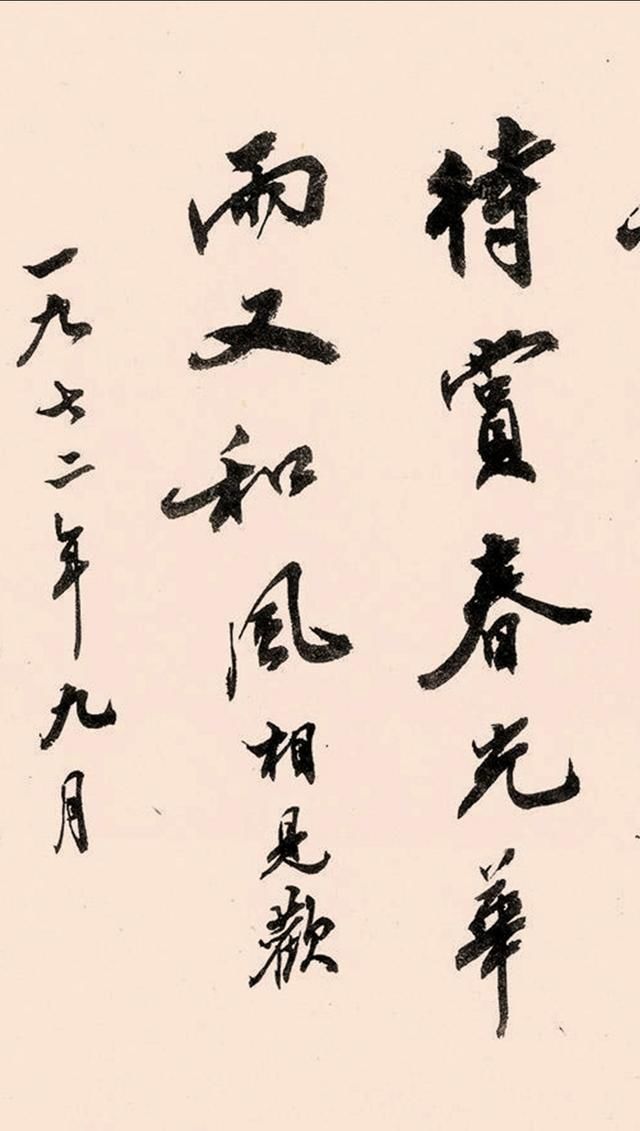 待賞春光華
雨又和風相見歡
一九七二年九月